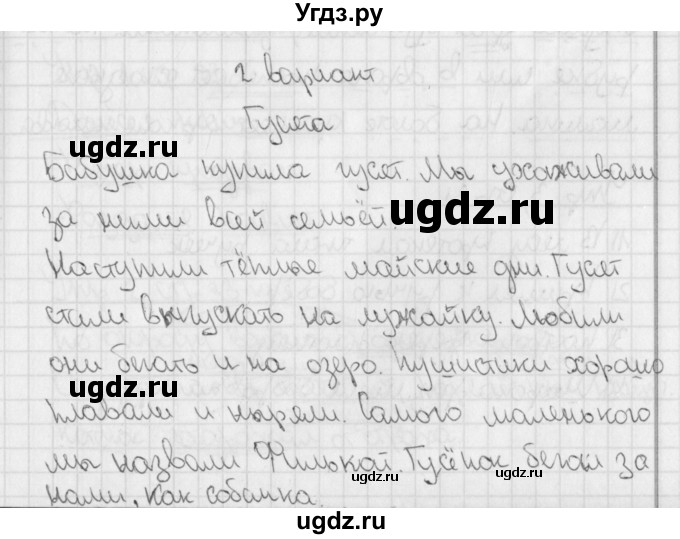 Угдз.ру
2 вариант
Гусята
ugdz.ru
Бабушка купила гусят. Мы ухаживали
ugdz.ru
за ними всей семьёй.
Наступили тёплые майские дни. Гусят
стали выпускать на лужайку. Любили
они бегать и на озеро. Пушистики хорошо
ugdz.ru
плавали и ныряли. Самого маленького
мы назвали Филькой. Гусёнок бегал за
ugdz.ru
нами, как собачка.
ugdz.ru